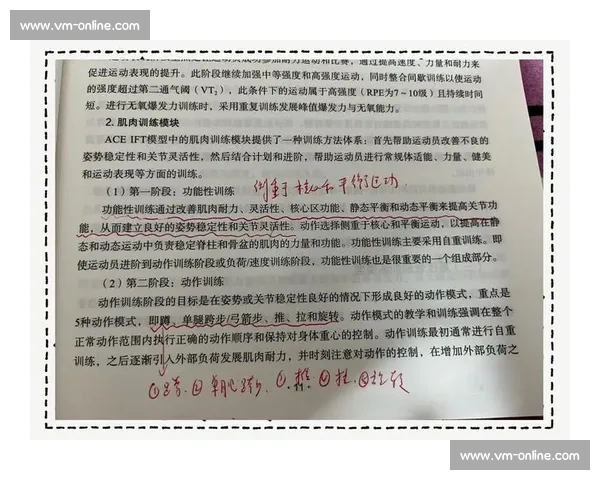 www.vm-online.com
促进运动表现的提升。此阶段继续加强中等强度和高强度运动，同时整合间歇训练以使运动
的强度超过第二通气阈（VT₂），此条件下的运动属于高强度（RPE为7～10级）且持续时间
短。进行无氧爆发力训练时，采用重复训练发展峰值爆发力与无氧能力。
2. 肌肉训练模块
ACE IFT模型中的肌肉训练模块提供了一种训练方法体系：首先帮助运动员改善不良的
姿势稳定性和关节灵活性，然后结合计划和进阶，帮助运动员进行常规体适能、力量、健美
和运动表现等方面的训练。
（1）第一阶段：功能性训练 侧重于核心和平衡运动
功能性训练通过改善肌肉耐力、灵活性、核心区功能、静态平衡和动态平衡来提高关节功
能，从而建立良好的姿势稳定性和关节灵活性。动作选择侧重于核心和平衡运动，以提高在静
态和动态运动中负责稳定脊柱和骨盆的肌肉的力量和功能。功能性训练主要采用自重训练。即
使运动员进阶到动作训练阶段或负荷/速度训练阶段，功能性训练也是很重要的一个组成部分。
（2）第二阶段：动作训练
动作训练阶段的目标是在姿势或关节稳定性良好的情况下形成良好的动作模式，重点是
5种动作模式，即蹲、单腿跨步/弓箭步、推、拉和旋转。动作模式的教学和训练强调在整个
正常动作范围内执行正确的动作顺序和保持对身体重心的控制。动作训练最初通常进行自重
训练，之后逐渐引入外部负荷发展肌肉耐力，并时刻注意对动作的控制，在增加外部负荷之
①蹲. ② 单腿跨步. 推 ④拉 ⑤旋转
www.vm-online.com